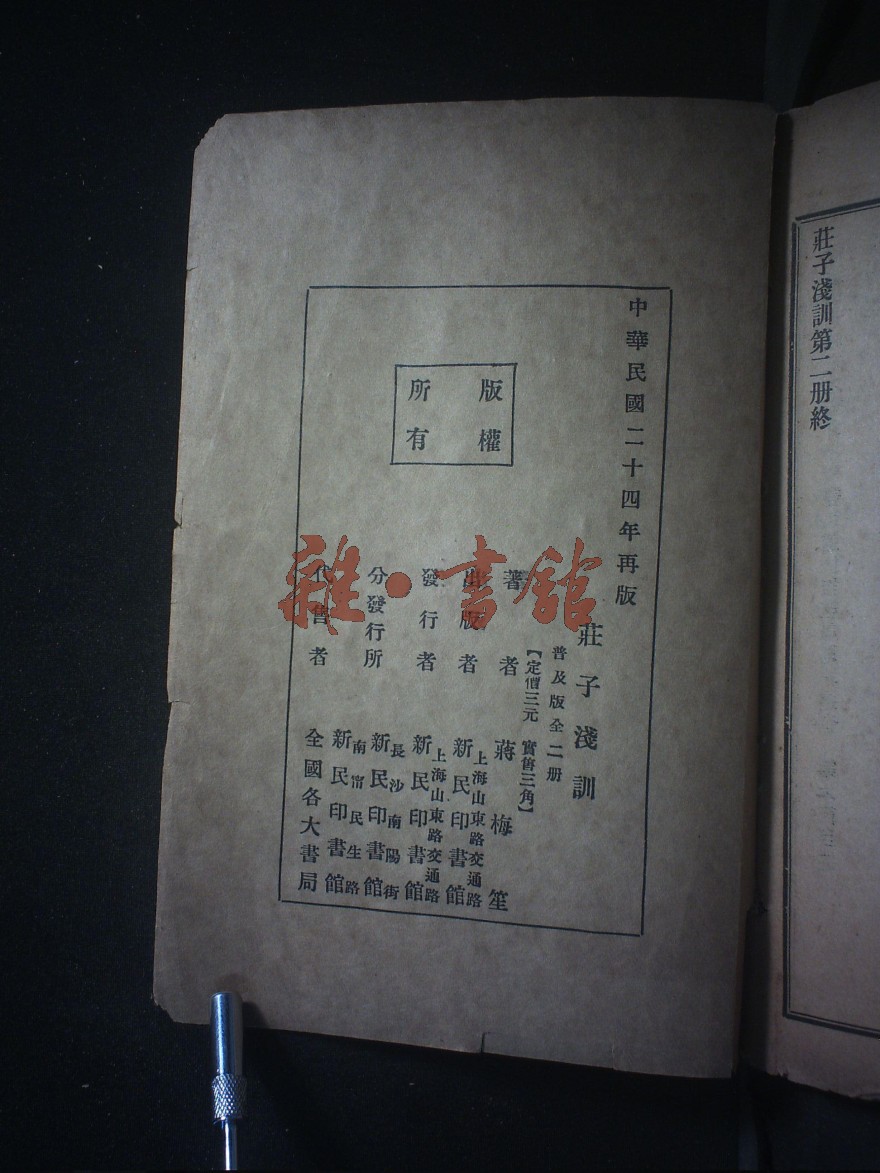 莊子淺訓第二册終
中華民國二十四年再版
莊子淺訓
普及版全二册
【定價三元 實售三角】
著者 蔣梅笙
出版者 上海山東路交通路 新民印書館
發行者 上海山東路交通路 新民印書館
分發行所 長沙南陽街 新民印書館
南甯民生路 新民印書館
代售者 全國各大書局
版權
所有
雜·書館